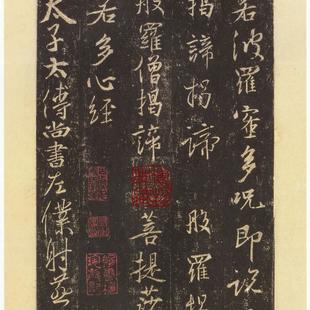 若波羅蜜多呪即說
揭諦揭諦 般羅揭
般羅僧揭諦 菩提莎
若多心經
太子太傅尚書左僕射燕